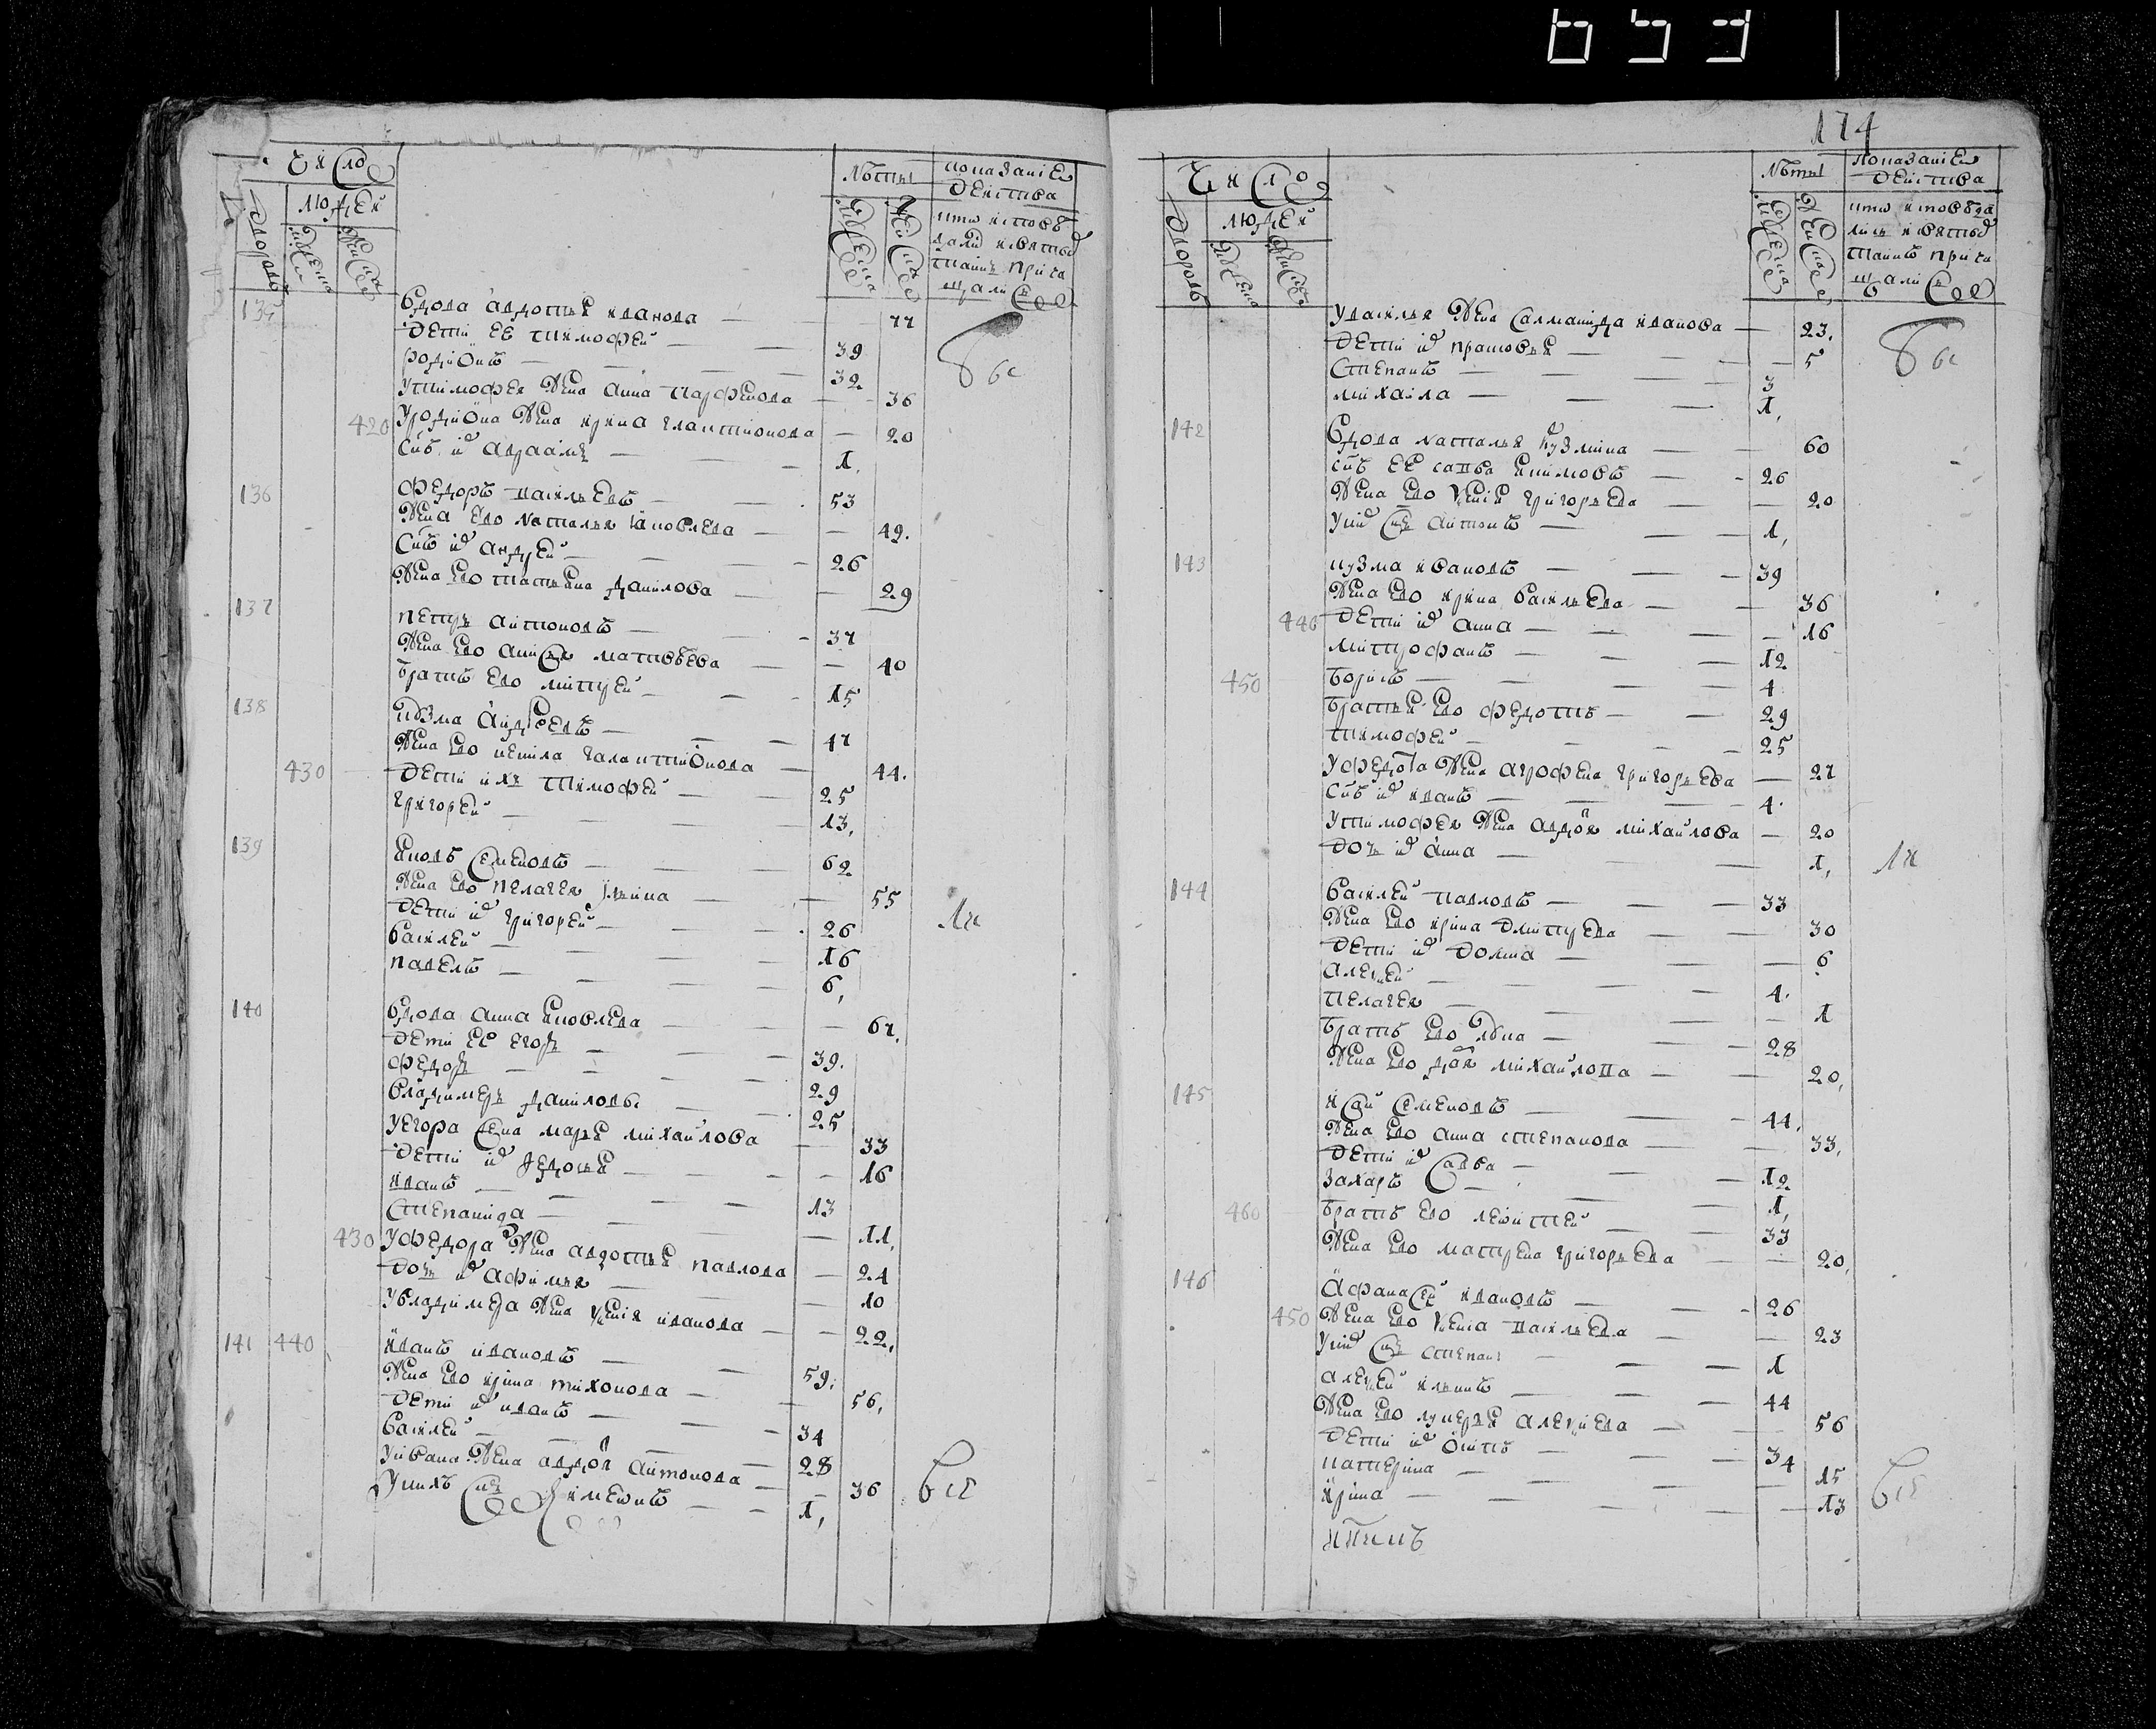 659
Число
Дворовъ
людей
мужеска
женска
лѣты
мужеска
женска
показаніе
действа
кто исповѣ
дался и святыхъ
таинъ прича
щался
135
вдова авдотья иванова — 77
дети ее тимофей — 39
родионъ — 32
у тимофея жена анна парфенова — 36
420 у родиона жена ирина галактионова — 20
сынъ их авраамъ — 1
136 федоръ васильевъ — 53
жена ево наталья яковлева — 49
сынъ их андрей — 26
жена ево татьяна данилова — 29
137 петръ антоновъ — 37
жена ево анисья матвѣева — 40
братъ ево митрей — 15
138 кузма андреевъ — 47
жена ево галактионова — 44
430 дети ихъ тимофей — 25
григорей — 13
139 яковъ семеновъ — 62
жена ево пелагея ильина — 55
дети их григорей — 26
василей — 16
павелъ — 6
140 вдова анна яковлева — 67
дети ее егоръ — 39
федоръ — 29
владимеръ даниловы — 25
у егора жена марья михайлова — 33
дети их федосья — 16
иванъ — 13
степанида — 11
430 у федора жена авдотья павлова — 24
дочь их афимья — 10
у владимера жена ксения иванова — 22
141 440 иванъ ивановъ — 59
жена ево ирина тихонова — 56
дети их иванъ — 34
василей — 28
у ивана жена авдотья антонова — 36
у нихъ сынъ симеонъ — 1
174
Число
Дворовъ
людей
мужеска
женска
лѣты
мужеска
женска
показаніе
действа
кто исповѣда
лись и святыхъ
таинъ прича
щались
у василья жена саламанида иванова — 23
дети их прасковья — 5
степанъ — 3
михаила — 1
142 вдова наталья кузмина — 60
сынъ ее савва — 26
жена ево ксения григорьева — 20
у них сынъ антонъ — 1
143 кузма ивановъ — 39
жена ево ирина васильева — 36
440 дети их анна — 16
митрофанъ — 12
450 борисъ — 4
братья ево федотъ — 29
тимофей — 25
у федота жена агрофена григорьева — 27
сынъ их иванъ — 4
у тимофея жена авдотья михайлова — 20
дочь их анна — 1
144 василей павловъ — 33
жена ево ирина дмитрева — 30
дети их домна — 6
алексей — 4
пелагея — 1
братъ ево — 28
жена ево дарья михайлова — 20
145 исай семеновъ — 44
жена ево анна степанова — 33
дети их савва — 12
захаръ — 1
460 братъ ево леонтей — 33
жена ево матрена григорьева — 20
146 афанасей ивановъ — 26
450 жена ево ксения васильева — 23
у них сынъ степанъ — 1
алексей ильинъ — 44
жена ево лукерья алексеева — 56
дети их осипъ — 34
катерина — 15
ирина — 13